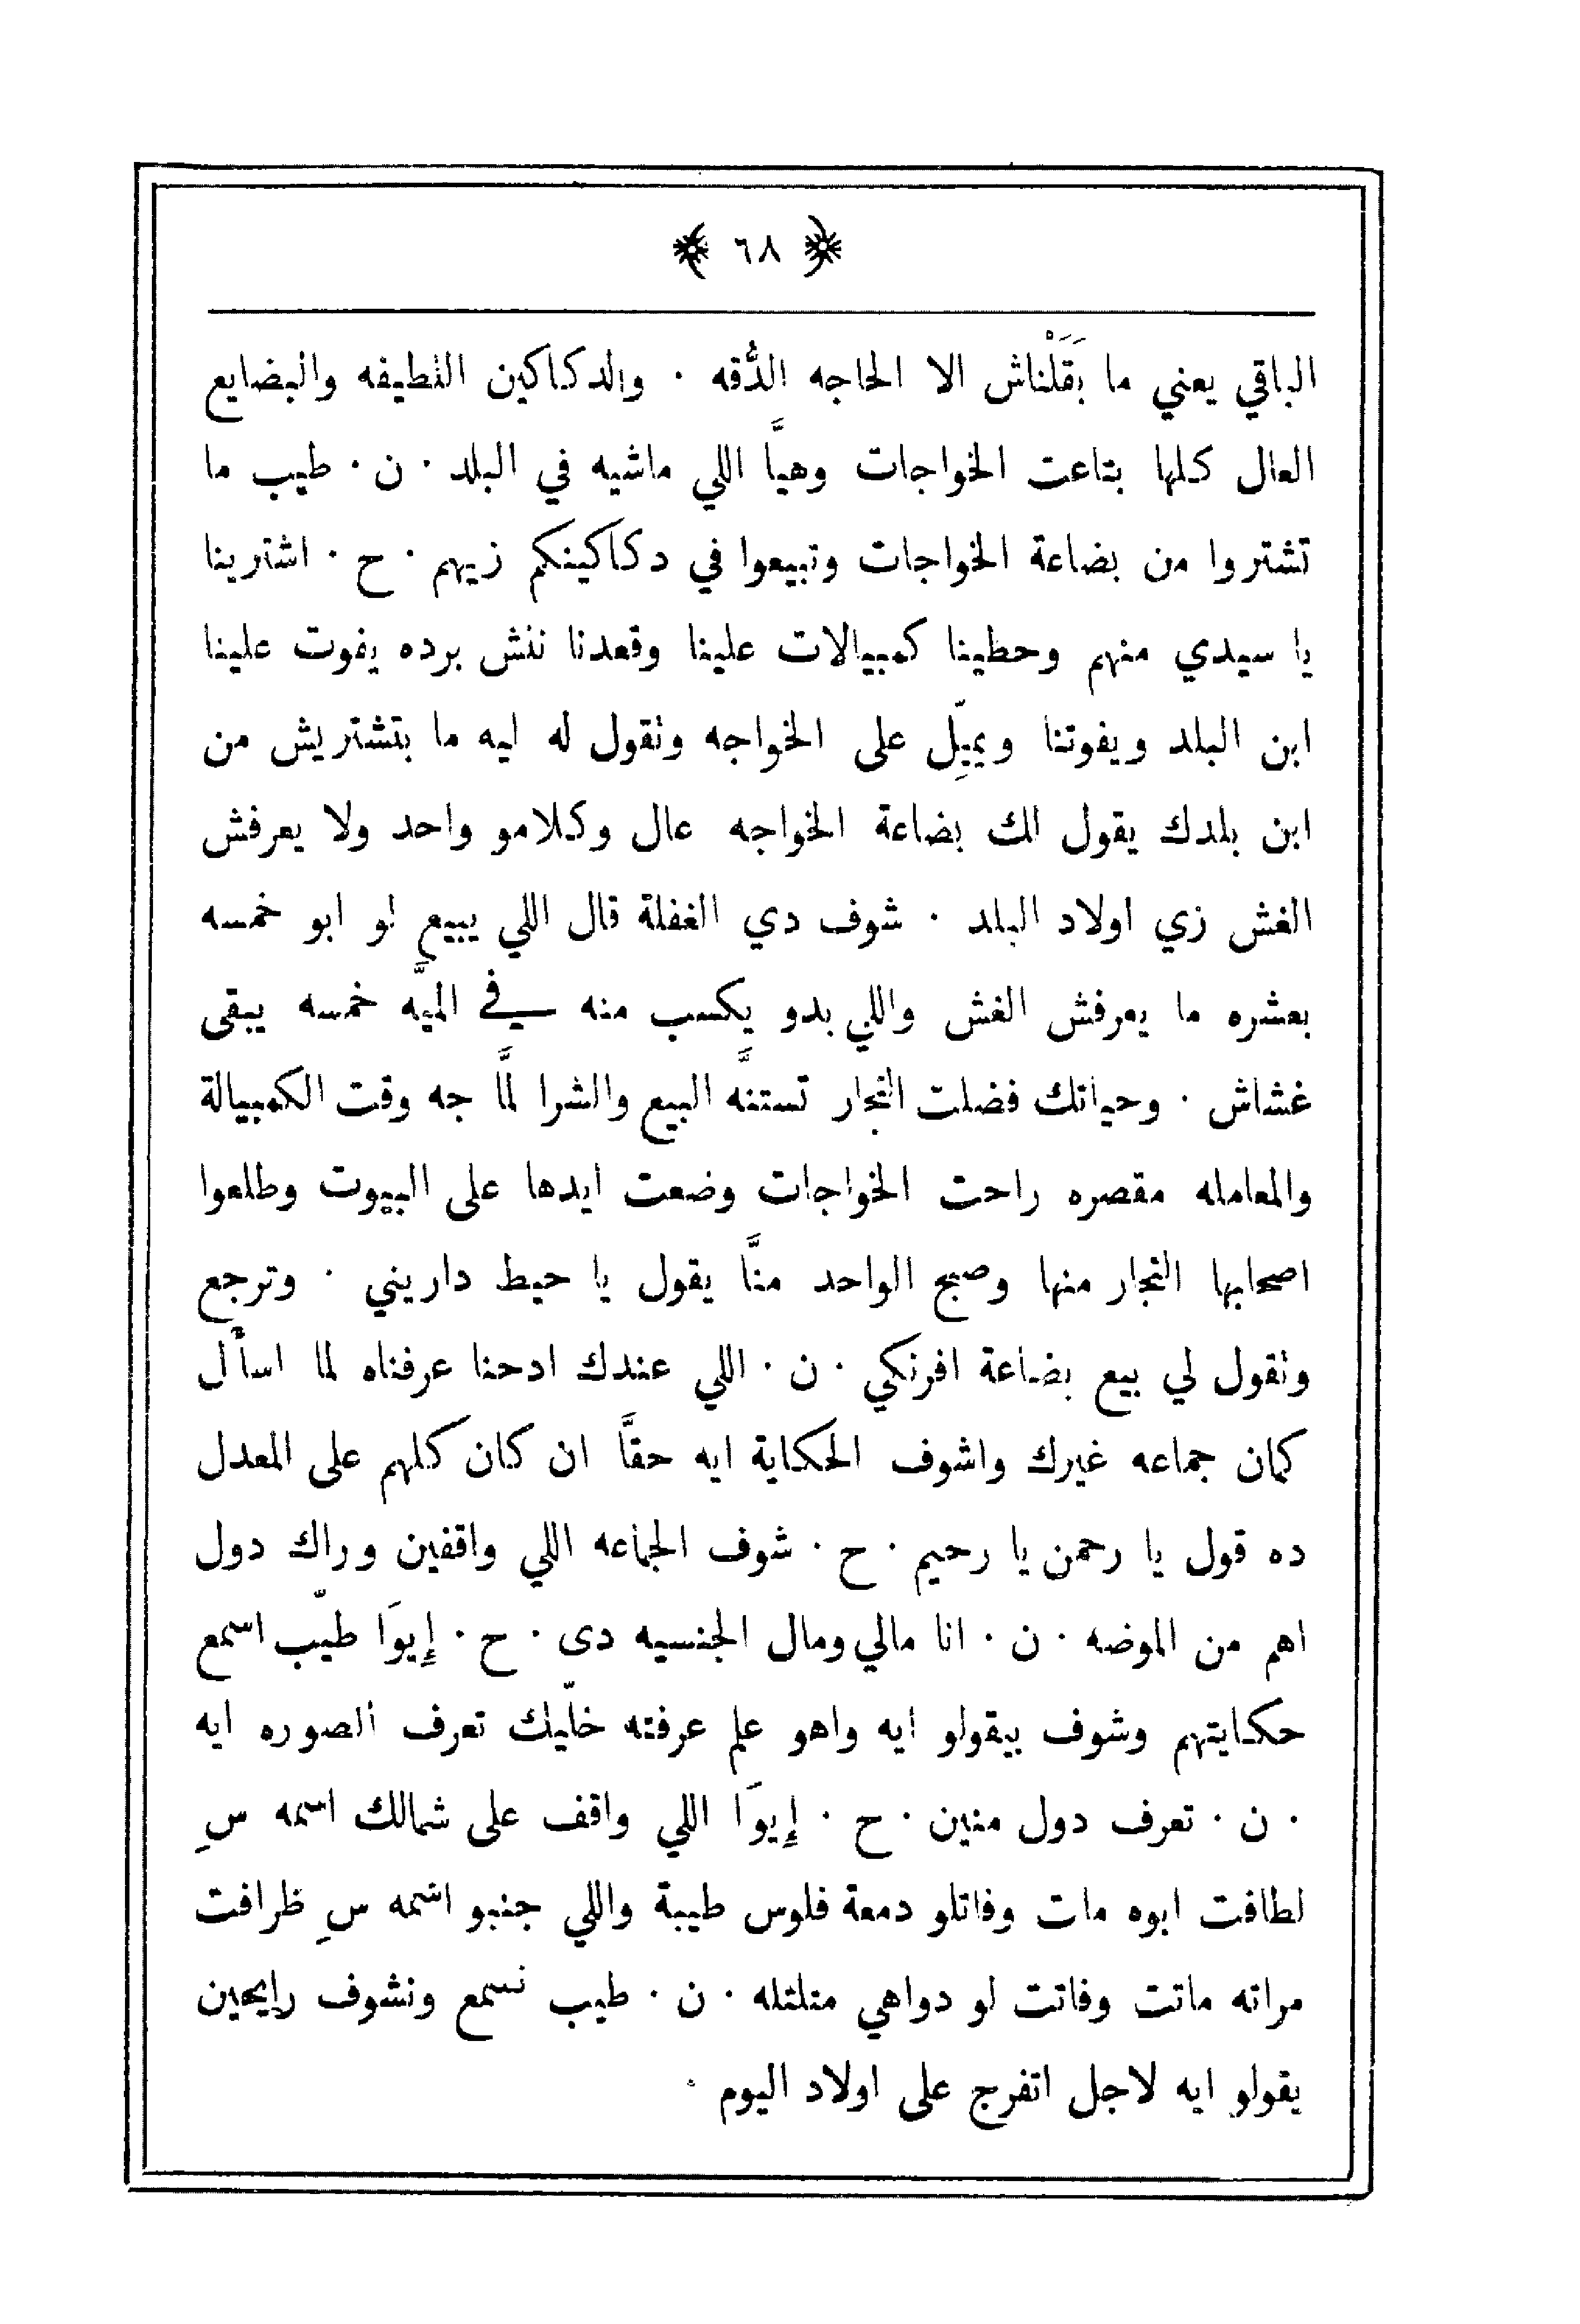 ﴿ ٦٨ ﴾
الباقي يعني ما بَقَلْناش الا الحاجه الدُّقه · والدكاكين النظيفه والبضايع
العال كلها بتاعت الخواجات وهيَّا اللي ماشيه في البلد · ن · طيب ما
تشتروا من بضاعة الخواجات وتبيعوا في دكاكينكم زيهم · ح · اشترينا
يا سيدي منهم وحطينا كمبيالات علينا وقعدنا ننش برده يفوت علينا
ابن البلد ويفوتنا ويميِّل على الخواجه ونقول له ليه ما بتشتريش من
ابن بلدك يقول لك بضاعة الخواجه عال وكلامو واحد ولا يعرفش
الغش زي اولاد البلد · شوف دي الغفلة قال اللي يبيع لو ابو خمسه
بعشره ما يعرفش الغش واللي بدو يكسب منه في الميَّه خمسه يبقى
غشاش · وحياتك فضلت التجار تستنَّه البيع والشرا لمَّا جه وقت الكمبيالة
والمعامله مقصره راحت الخواجات وضعت ايدها على البيوت وطلعوا
اصحابها التجار منها وصبح الواحد منَّا يقول يا حيط داريني · وترجع
ونقول لي بيع بضاعة افرنكي · ن · اللي عندك ادحنا عرفناه لما اسأل
كمان جماعه غيرك واشوف الحكاية ايه حقَّا ان كان كلهم على المعدل
ده قول يا رحمن يا رحيم · ح · شوف الجماعه اللي واقفين وراك دول
اهم من الموضه · ن · انا مالي ومال الجنسيه دى · ح · إيوَا طيّب اسمع
حكايتهم وشوف بيقولو ايه واهو علم عرفته خلّيك تعرف الصوره ايه
· ن · تعرف دول منين · ح · إيوَا اللي واقف على شمالك اسمه سِ
لطافت ابوه مات وفاتلو دمعة فلوس طيبة واللي جنبو اسمه سِ ظرافت
مراته ماتت وفاتت لو دواهي متلتله · ن · طيب نسمع ونشوف رايحين
يقولو ايه لاجل اتفرج على اولاد اليوم ·